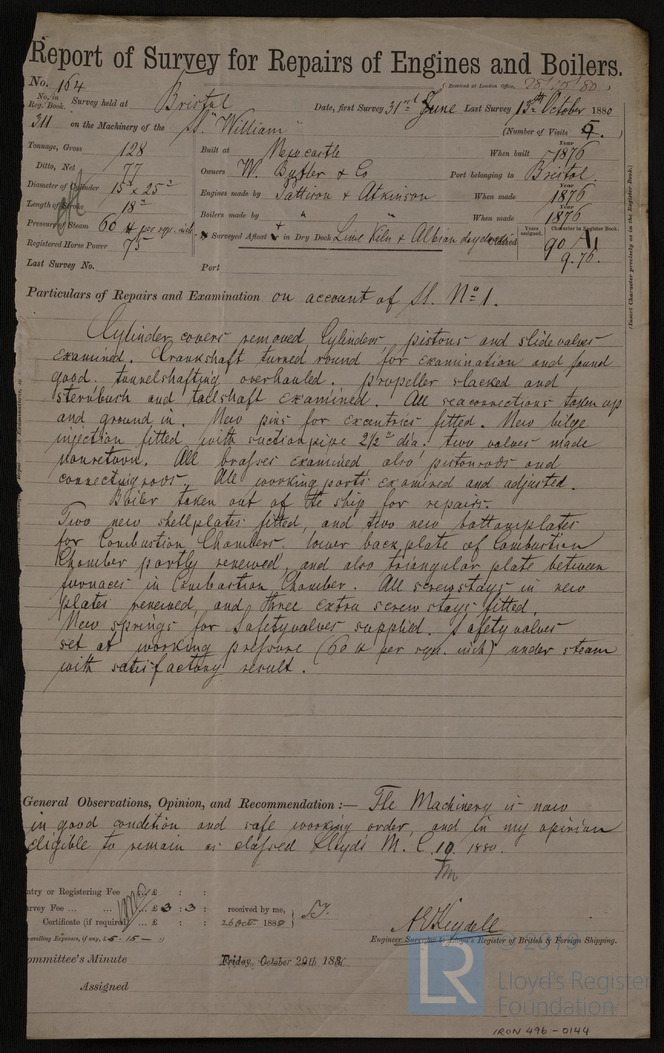 Report of Survey for Repairs of Engines and Boilers.
No. 164
(Received at London Office,
No. in Reg. Book. Survey held at Bristol Date, first Survey 31st June Last Survey 13th October 1880
311 on the Machinery of the SS. "William" (Number of Visits 9.)
Tonnage, Gross 128 Built at Newcastle When built Year 1876
Ditto, Net 77 Owners W. Butler & Co Port belonging to Bristol
Diameter of Cylinder 15" & 25" Engines made by Pattison & Atkinson When made Year 1876
Length of Stroke 18" Boilers made by " " When made Year 1876
Pressure of Steam 60 lb per sqr. inch Surveyed Afloat & in Dry Dock Lime Kiln & Albion dry docks
Years assigned. Character in Register Book.
90 A1
9.76.
Registered Horse Power 75
Last Survey No. Port
(Insert Character precisely as in the Register Book.)
Particulars of Repairs and Examination on account of SS. No. 1.
Cylinder covers removed, Cylinders, pistons and slidevalves
examined. Crankshaft turned round for examination and found
good. tunnelshafting overhauled. propeller slacked and
sternbush and tailshaft examined. All seaconnections taken up
and ground in. New pins for excentrics fitted. New bilge
injection fitted with suctionpipe 2 1/2" dia. two valves made
nonreturn. All brasses examined also pistonrods and
connectingrods. All working parts examined and adjusted.
Boiler taken out of the ship for repairs.
Two new shellplates fitted, and two new bottomplates
for Combustion Chambers. lower back plate of Combustion
Chamber partly renewed, and also triangular plate between
furnaces in Combustion Chamber. All screwstays in new
plates renewed, and three extra screw stays fitted.
New springs for Safetyvalves supplied. Safetyvalves
set at working pressure (60 lb per sqr. inch) under steam
with satisfactory result.
General Observations, Opinion, and Recommendation:— The Machinery is now
in good condition and safe working order, and in my opinion
eligible to remain as classed Lloyds M. C. 10. 1880.
ntry or Registering Fee ... £ : :
rvey Fee ... ... £ 3 : 3 : received by me,
Certificate (if required) ... £ : : 26 Oct 1880
velling Expenses, if any, £5-15-)
Engineer Surveyor to Lloyd's Register of British & Foreign Shipping.
ommittee's Minute Friday, October 29th, 188
Assigned
© 2019
LR
Lloyd's Register
Foundation
IRON 496-0144